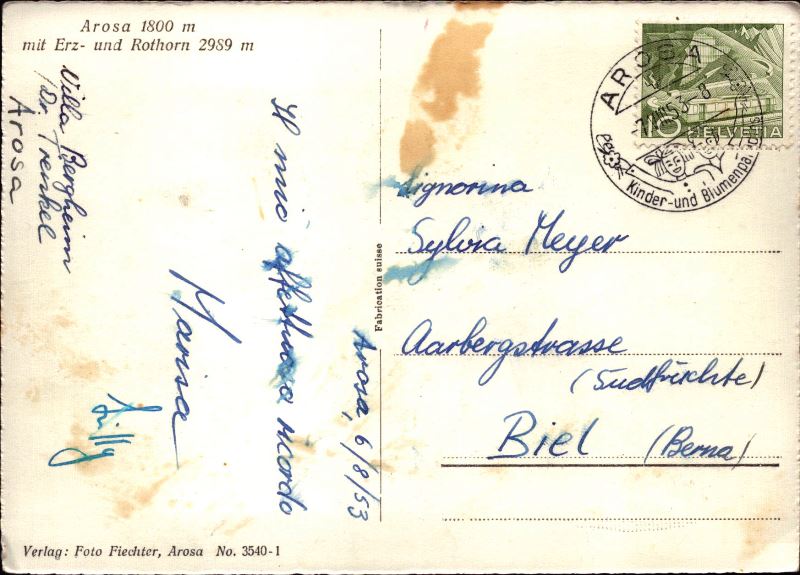 Arosa 1800 m
mit Erz- und Rothorn 2989 m
Villa Bergheim
Dr. Trenkel
Arosa
Il mio affettuoso ricordo
Marisa
Arosa, 6/8/53
Fabrication suisse
Signorina
Sylvia Meyer
Aarbergstrasse
(Südfrüchte)
Biel (Berna)
AROSA
Kinder-und Blumenpa
10 HELVETIA
Verlag: Foto Fiechter, Arosa No. 3540-1